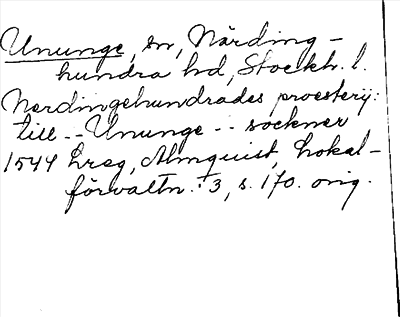 Ununge, sn, Närding-
hundra hd, Stockh. l.
Nerdingehundrades proesterij:
till -- Ununge -- sockner
1544 Lreg, Almquist, Lokal-
förvaltn. :3, s. 170. orig.